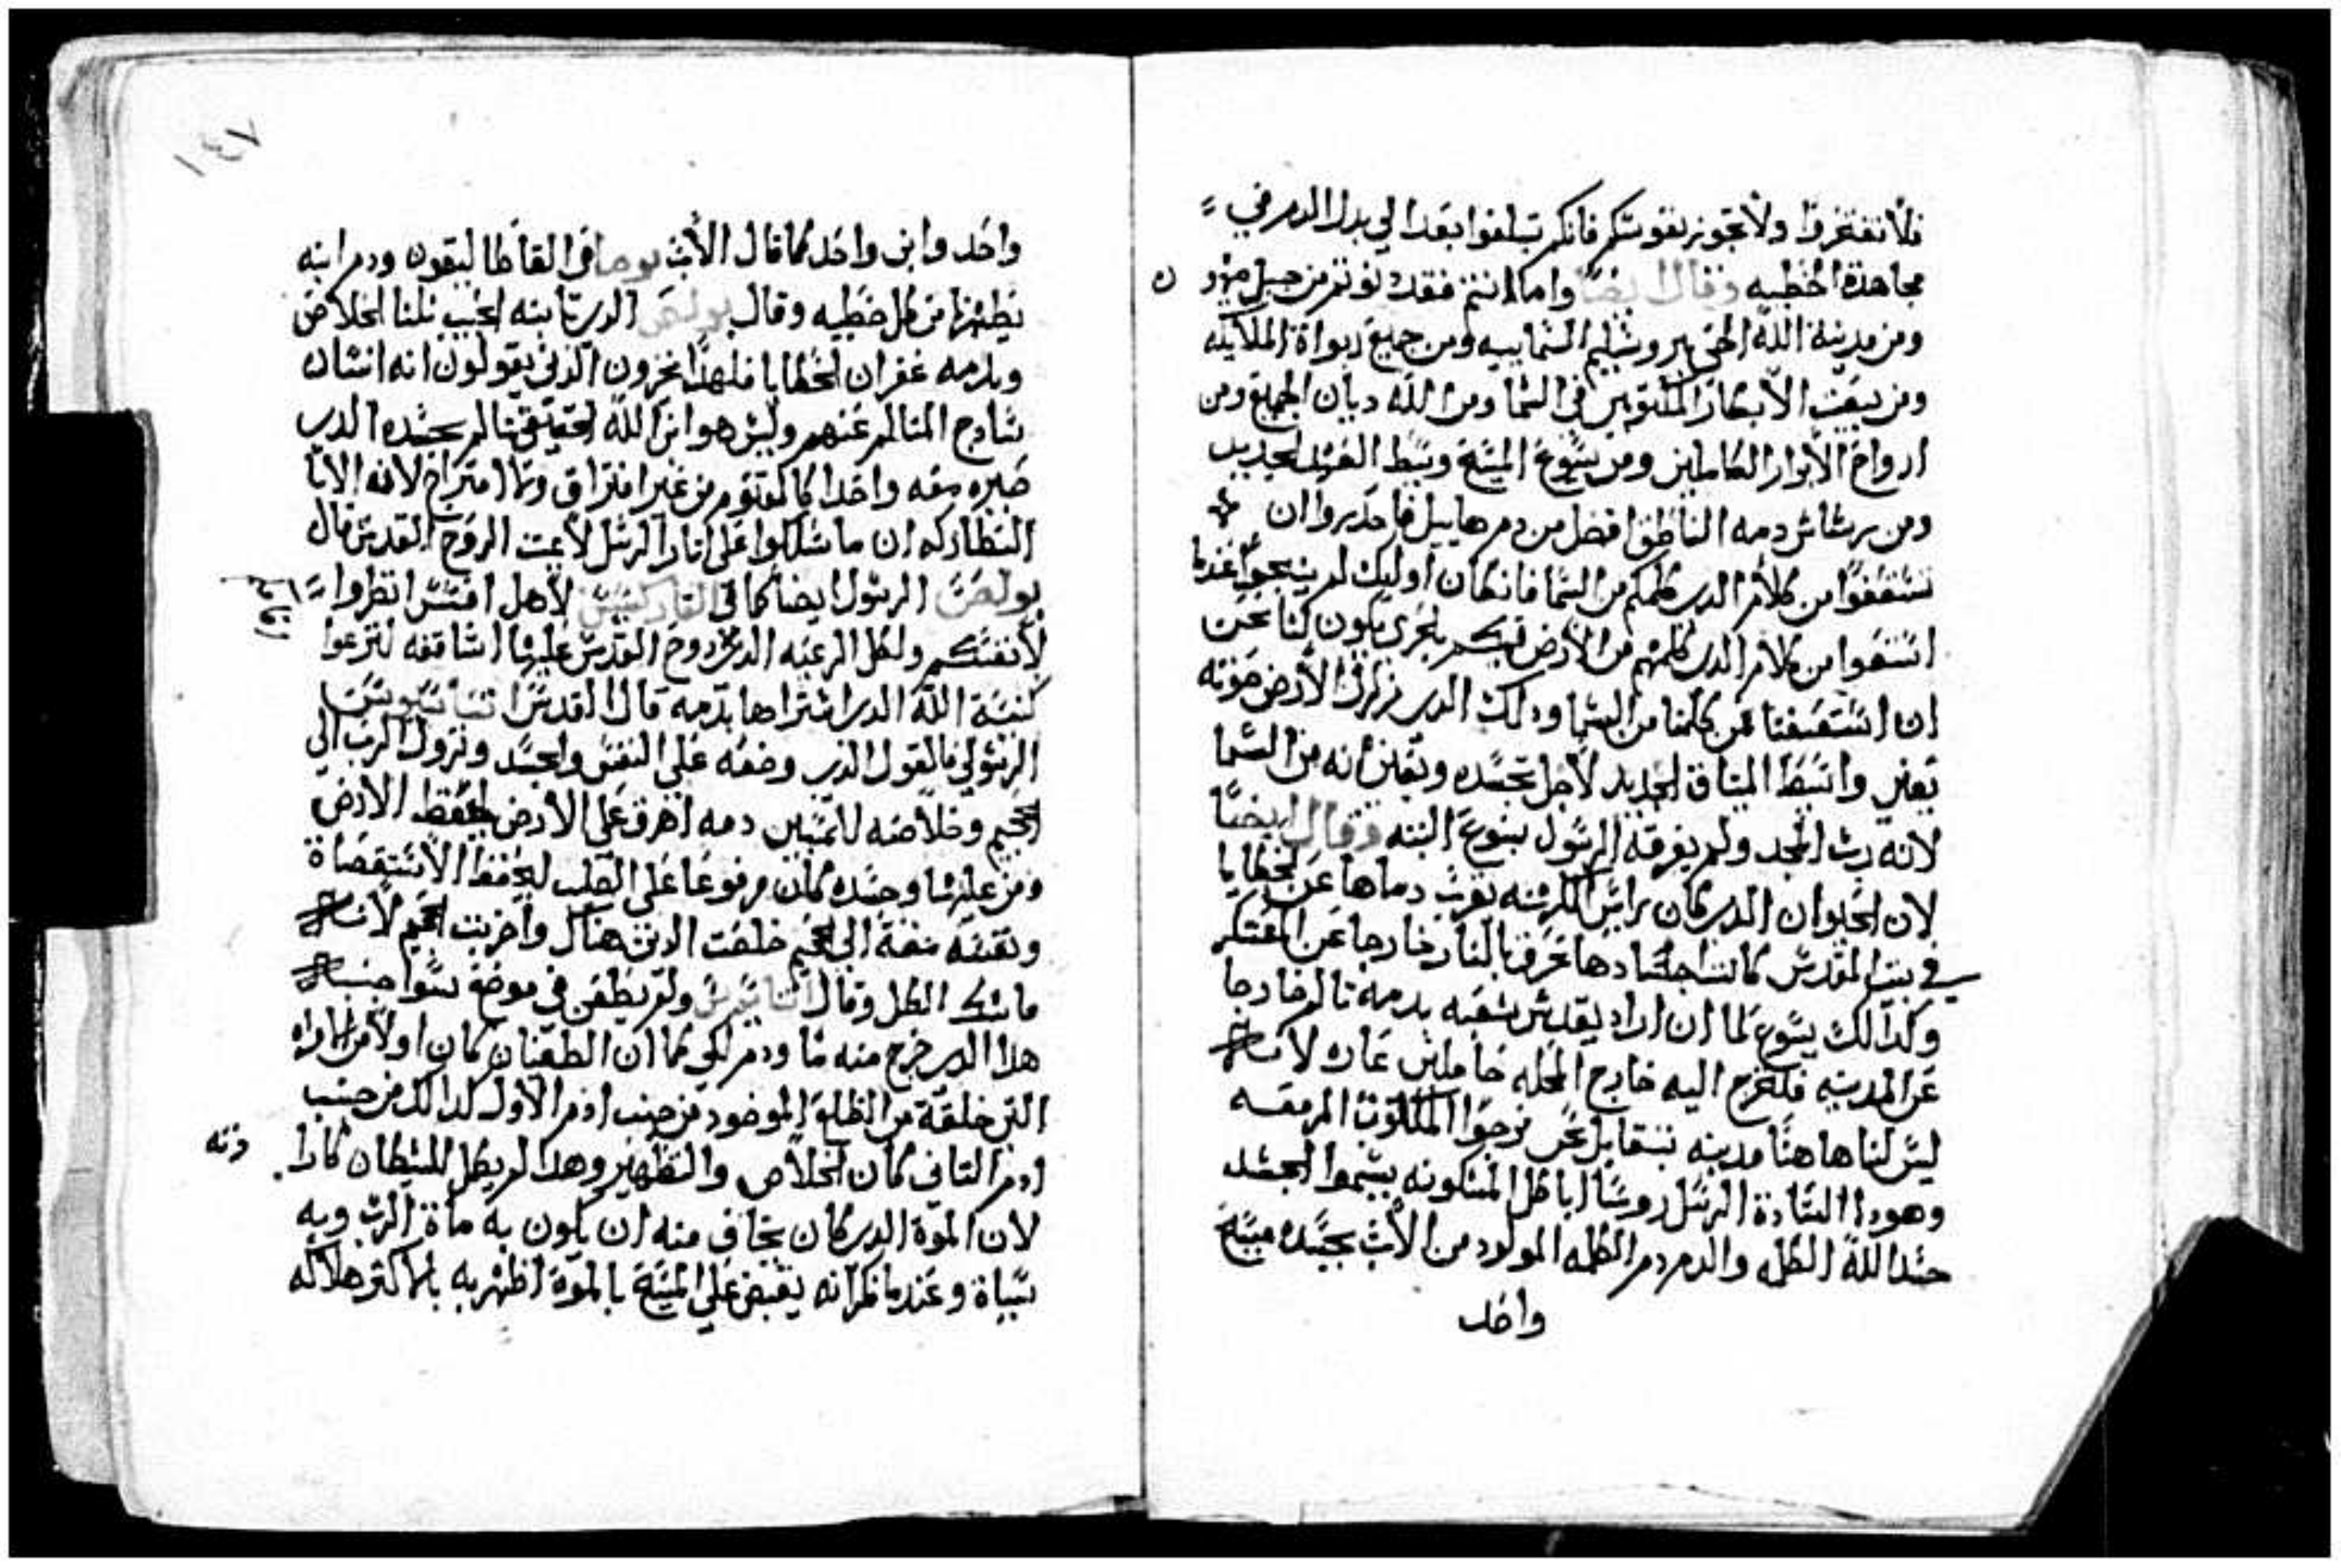 فلا تفتخروا ولا تجوز نفوسكم فانكم تبلغوا بعد الي بدل الدم في
مجاهدة الخطيه وقال ايضا واما انتم فقد دنوتم من جبل صهيون
ومن مدينة الله الحي يروشليم السماييه ومن جميع ربواة الملايكه
ومن بيعت الابكار المكتوبين في السما ومن الله ديان الجميع ومن
ارواح الابرار الكاملين ومن يسوع المسيح وسط العهد الجديد
ومن رشاش دمه الناطق افضل من دم هابيل فاحدروا ان
تستعفوا من كلام الدي كلمكم من السما فان كان اوليك لم ينجوا عندما
استعفوا من كلام الدي كلمهم من الارض فبكم بالحري يكون لنا نحن
ان استعفينا ممن كلمنا من السما ودلك الدي زلزل الارض صوته
يعني واسط الميتاق الجديد لاجل تجسده ويعني انه من السما
لانه رب المجد ولم يفرقه الرسول بنوع البته وقال ايضا
لان الحيوان الدي كان راس الكهنه يقرب دماها عن الخطايا
في بيت المقدس كانت اجسادها تحرق بالنار خارجا عن المعسكر
وكدالك يسوع لما ان اراد يقدس شعبه بدمه تالم خارجا
عن المدينه فلنخرج اليه خارج المحله حاملين عاره لاننا
ليس لنا هاهنا مدينه
وهودا السادة الرسل روسا اباكل المسكونه يسموا الجسد
جسد الله الكلمه والدم دم الكلمه المولود من الاب بجسده مسيح
واحد
١٤٧
واحد وابن واحد كما قال الاب يوحنا في القاطاليقون ودم ابنه
يطهرنا من كل خطيه وقال بولص الدي بابنه الحبيب نلنا الخلاص
وبدمه غفران الخطايا فلهدا يخزون الدين يقولون انه انسان
سادج المتالم عنهم وليس هو ابن الله الحقيقي تالم بجسده الدي
صيره معه واحدا كالمقتوم من غير افتراق ولا امتزاج لانه الابا
البطاركه ان ما سلكوا على اتار الرسل لا الروح القدس قال
بولص الرسول ايضا كما في الابركسيس لاهل افسس انظروا
لانفسكم ولكل الرعيه الدي روح القدس عليها اساقفه لترعوا
كنيسة الله الدي اشتراها بدمه قال القديس اتناسيوس
الرسولي فالقول الدي وضعه على النفس والجسد ونزول الرب الي
الجحيم وخلاصه للمسبيين دمه اهرق على الارض ليحفظ الارض
ومن عليها وجسده كان مرفوعا على الصليب ليحفظ الاستقصاة
ونفسه مضة الى الجحيم خلصت الدين هناك واخربت الجحيم لانه
ماسك الكل وقال اتناسيوس ولم يطعن في موضع سوا جنبه
هدا الدي خرج منه ما ودم لكي كما ان الطغيان كان اولا من المراه
التي خلقة من الظلع الموخود من جنب ادم الاول كدالك من جنب
ادم التاني كان الخلاص والتطهير وهدا لم يكل للشيطان كارا دته
لان الموة الدي كان يخاف منه ان يكون به ماة الرب وبه
سباة وعندما فكر انه يقبض على المسيح بالموة اظهر به بالاكتر هلاكه